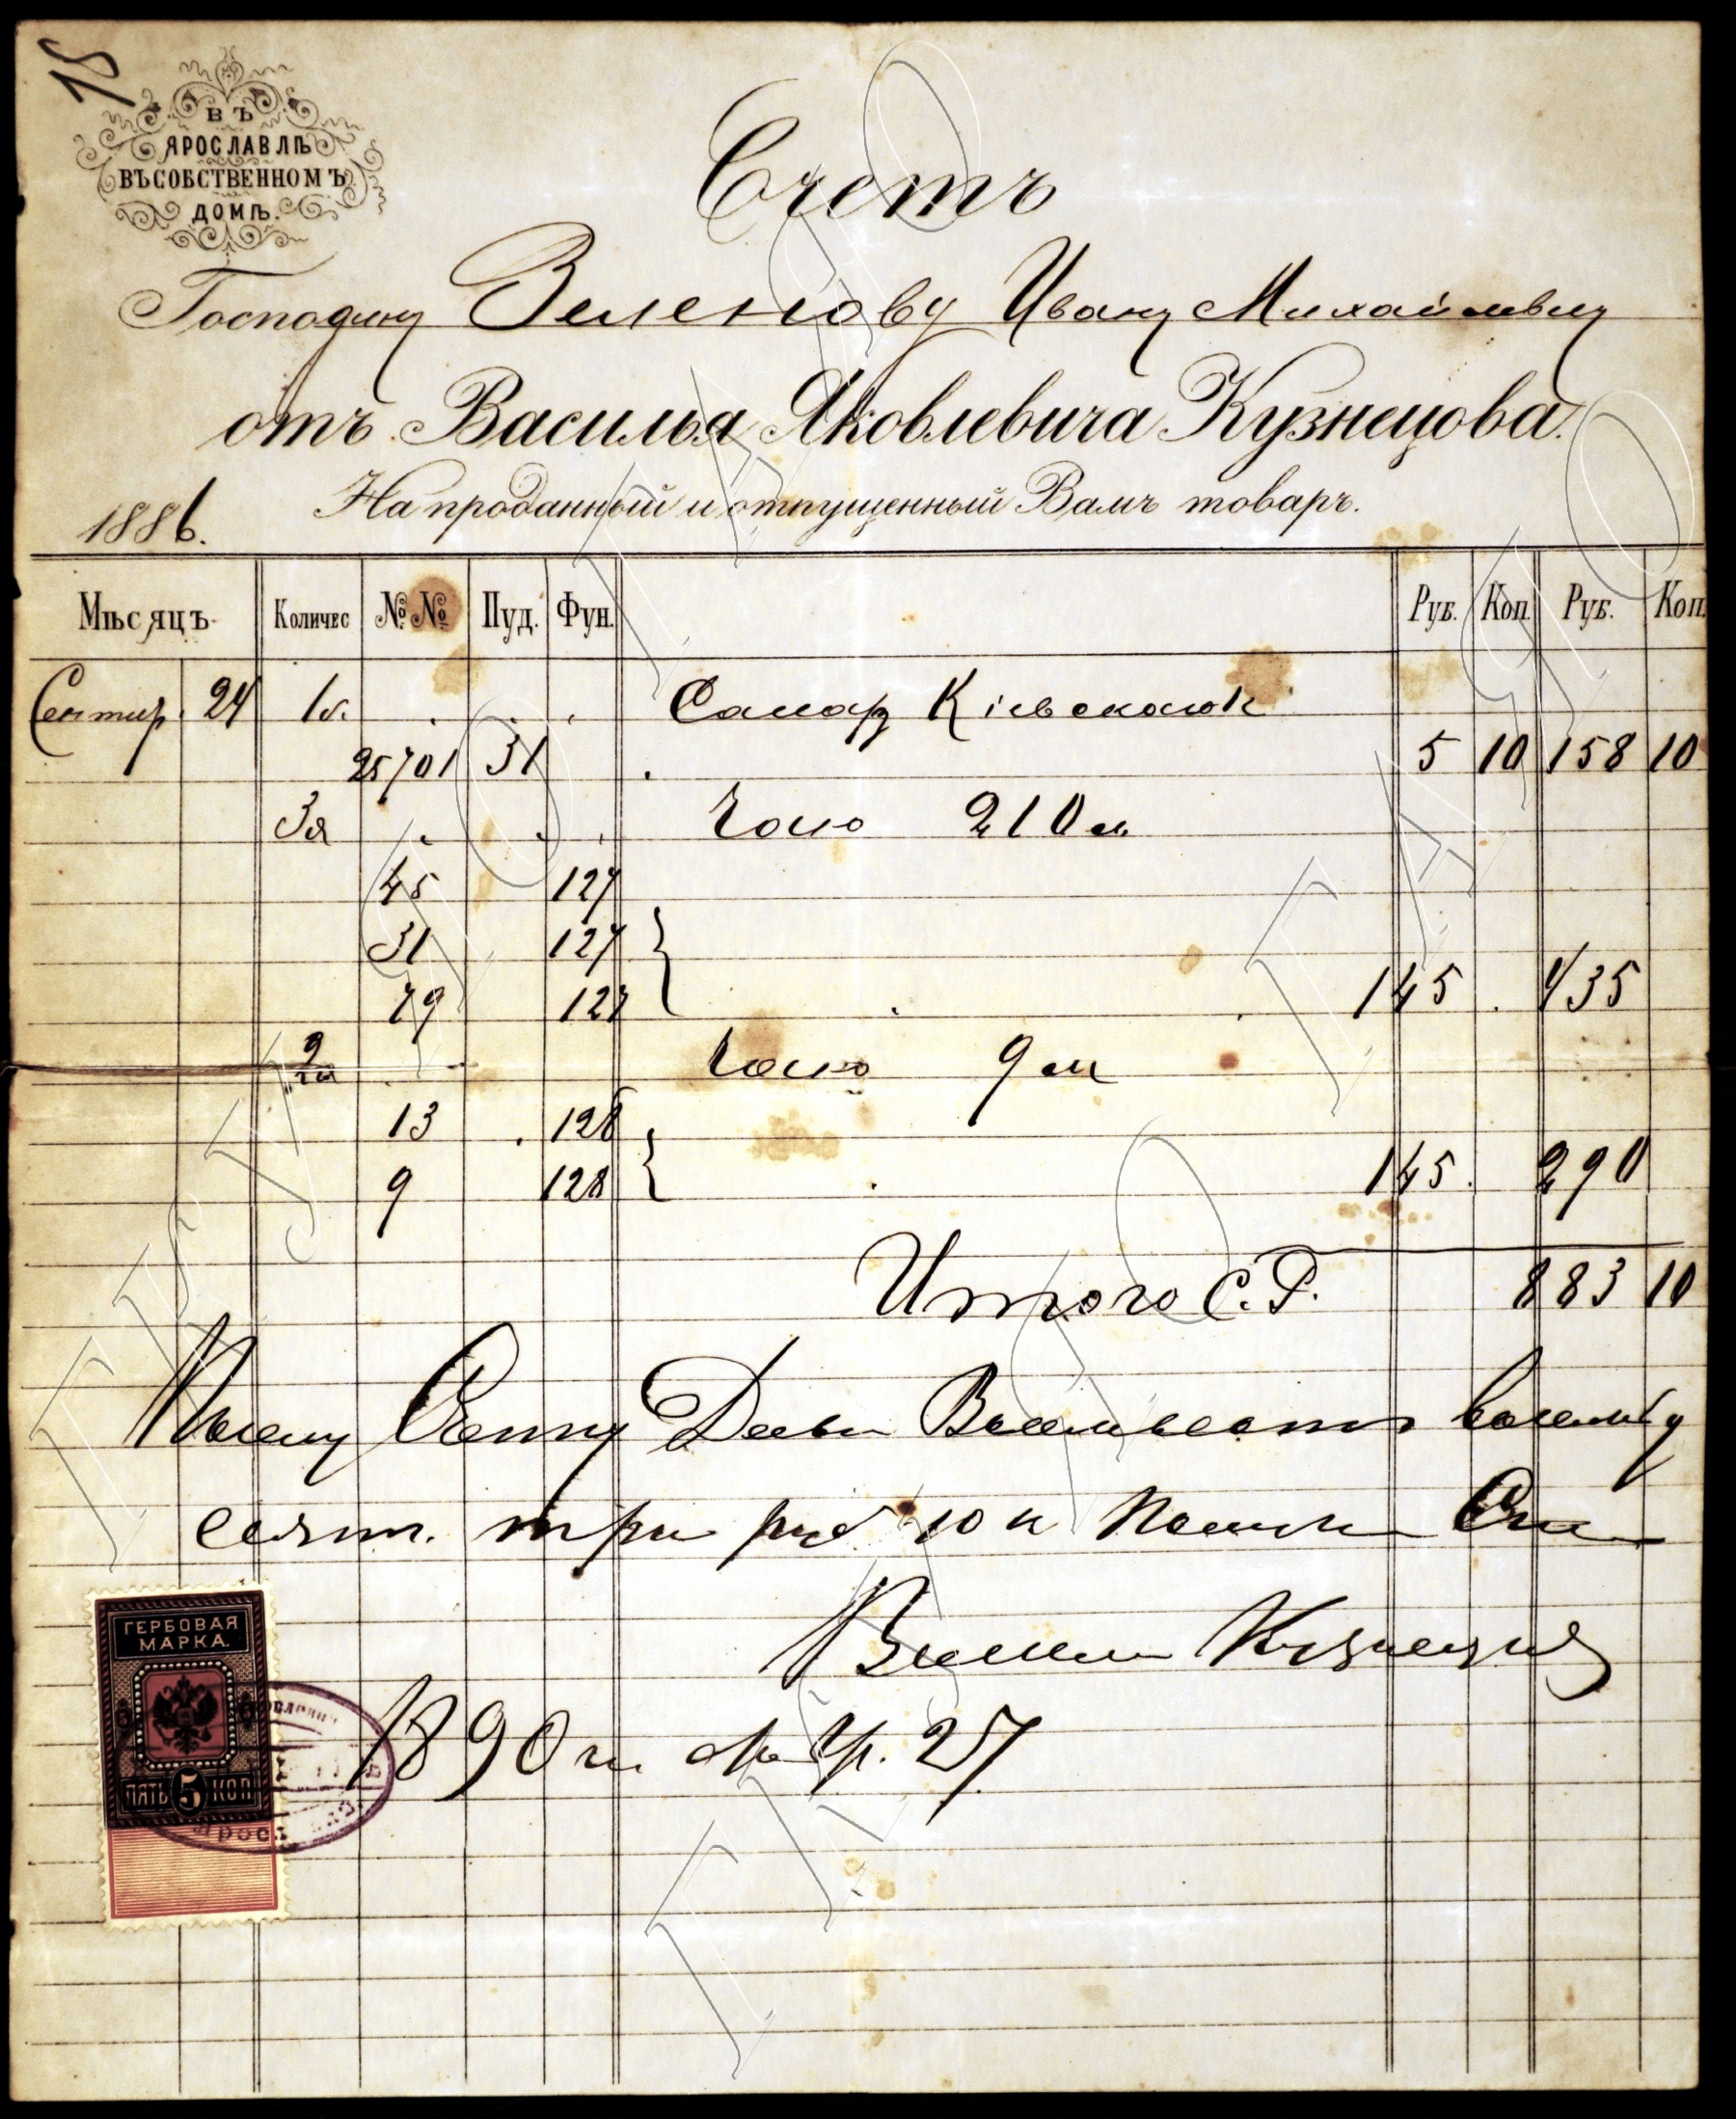 18
ВЪ
ЯРОСЛАВЛѢ
ВЪ СОБСТВЕННОМЪ
ДОМѢ.
Счетъ
Господину Зеленову Ивану Михайловичу
отъ Василья Яковлевича Кузнецова.
1886. На проданный и отпущенный Вамъ товаръ.
Мѣсяцъ Количес №№ Пуд. Фун. Руб. Коп. Руб. Коп.
Сентяр. 24 1б. Сахару Кіевскаго
25701 31 5 10 158 10
3я Чаю 210
45 127
31 127
79 127 145 435
2 Чаю 9
13 128
9 128 145 290
Итого С.Р. 883 10
По сему Счету Деньги Восемьсотъ восемьде
сятъ три руб 10 к Получилъ
Василий Кузнецовъ
1890 27
ГЕРБОВАЯ
МАРКА.
ПЯТЬ 5 КОП